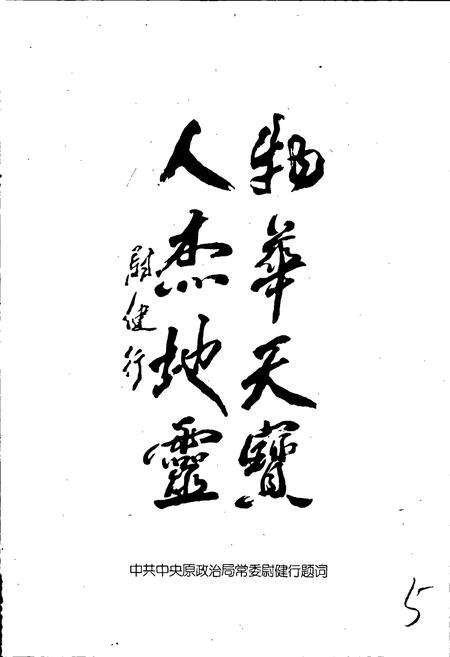 物华天寳
人杰地靈
尉健行
中共中央原政治局常委尉健行题词
5